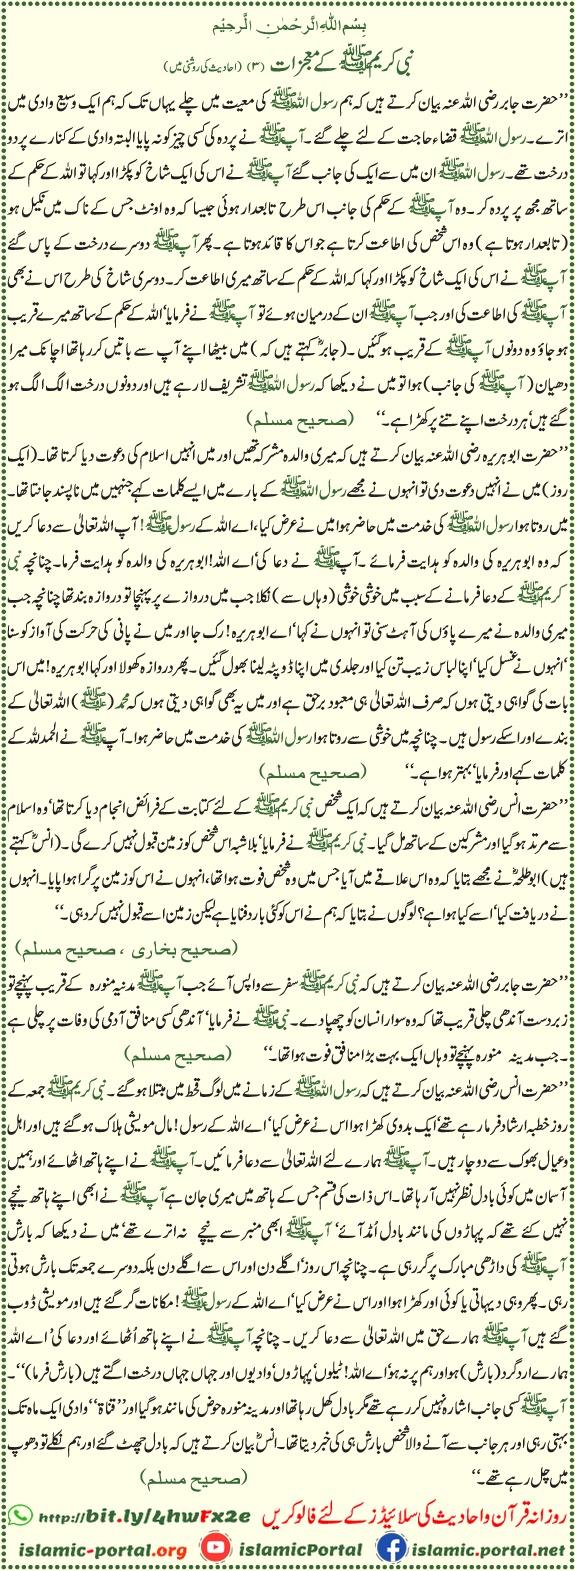 بِسْمِ اللهِ الرَّحْمٰنِ الرَّحِيْمِ
نبی کریم ﷺ کے معجزات (۳) (احادیث کی روشنی میں)
’’حضرت جابر رضی اللہ عنہ بیان کرتے ہیں کہ ہم رسول اللہ ﷺ کی معیت میں چلے یہاں تک کہ ہم ایک وسیع وادی میں
اترے۔ رسول اللہ ﷺ قضاء حاجت کے لئے چلے گئے۔ آپ ﷺ نے پردہ کی کسی چیز کو نہ پایا البتہ وادی کے کنارے پر دو
درخت تھے۔ رسول اللہ ﷺ ان میں سے ایک کی جانب گئے آپ ﷺ نے اس کی ایک شاخ کو پکڑا اور کہا تو اللہ کے حکم کے
ساتھ مجھ پر پردہ کر۔ وہ آپ ﷺ کے حکم کی جانب اس طرح تابعدار ہوئی جیسا کہ وہ اونٹ جس کے ناک میں نکیل ہو
(تابعدار ہوتا ہے) وہ اس شخص کی اطاعت کرتا ہے جو اس کا قائد ہوتا ہے۔ پھر آپ ﷺ دوسرے درخت کے پاس گئے
آپ ﷺ نے اس کی ایک شاخ کو پکڑا اور کہا کہ اللہ کے حکم کے ساتھ میری اطاعت کر۔ دوسری شاخ کی طرح اس نے بھی
آپ ﷺ کی اطاعت کی اور جب آپ ﷺ ان کے درمیان ہوئے تو آپ ﷺ نے فرمایا ’اللہ کے حکم کے ساتھ میرے قریب
ہو جاؤ وہ دونوں آپ ﷺ کے قریب ہو گئیں۔ (جابرؓ کہتے ہیں کہ) میں بیٹھا اپنے آپ سے باتیں کر رہا تھا اچانک میرا
دھیان (آپ ﷺ کی جانب) ہوا تو میں نے دیکھا کہ رسول اللہ ﷺ تشریف لا رہے ہیں اور دونوں درخت الگ الگ ہو
گئے ہیں‘ ہر درخت اپنے تنے پر کھڑا ہے۔‘‘ (صحیح مسلم)
’’حضرت ابو ہریرہ رضی اللہ عنہ بیان کرتے ہیں کہ میری والدہ مشرکہ تھیں اور میں انہیں اسلام کی دعوت دیا کرتا تھا۔ (ایک
روز) میں نے انہیں دعوت دی تو انہوں نے مجھے رسول اللہ ﷺ کے بارے میں ایسے کلمات کہے جنہیں میں ناپسند جانتا تھا۔
میں روتا ہوا رسول اللہ ﷺ کی خدمت میں حاضر ہوا میں نے عرض کیا، اے اللہ کے رسول ﷺ! آپ اللہ تعالیٰ سے دعا کریں
کہ وہ ابو ہریرہ کی والدہ کو ہدایت فرمائے۔ آپ ﷺ نے دعا کی‘ اے اللہ! ابو ہریرہ کی والدہ کو ہدایت فرما۔ چنانچہ نبی
کریم ﷺ کے دعا فرمانے کے سبب میں خوشی خوشی (وہاں سے) نکلا جب میں دروازے پر پہنچا تو دروازہ بند تھا چنانچہ جب
میری والدہ نے میرے پاؤں کی آہٹ سنی تو انہوں نے کہا‘ اے ابو ہریرہ! رک جا اور میں نے پانی کی حرکت کی آواز کو سنا
‘انہوں نے غسل کیا‘ اپنا لباس زیب تن کیا اور جلدی میں اپنا دوپٹہ لینا بھول گئیں۔ پھر دروازہ کھولا اور کہا ابو ہریرہ! میں اس
بات کی گواہی دیتی ہوں کہ صرف اللہ تعالیٰ ہی معبود برحق ہے اور میں یہ بھی گواہی دیتی ہوں کہ محمد (ﷺ) اللہ تعالیٰ کے
بندے اور اسکے رسول ہیں۔ چنانچہ میں خوشی سے روتا ہوا رسول اللہ ﷺ کی خدمت میں حاضر ہوا۔ آپ ﷺ نے الحمد للہ کے
کلمات کہے اور فرمایا‘ بہتر ہوا ہے۔‘‘ (صحیح مسلم)
’’حضرت انس رضی اللہ عنہ بیان کرتے ہیں کہ ایک شخص نبی کریم ﷺ کے لئے کتابت کے فرائض انجام دیا کرتا تھا‘ وہ اسلام
سے مرتد ہو گیا اور مشرکین کے ساتھ مل گیا۔ نبی کریم ﷺ نے فرمایا‘ بلاشبہ اس شخص کو زمین قبول نہیں کرے گی۔ (انسؓ کہتے
ہیں) ابو طلحہؓ نے مجھے بتایا کہ وہ اس علاقے میں آیا جس میں وہ شخص فوت ہوا تھا، انہوں نے اس کو زمین پر گرا ہوا پایا۔ انہوں
نے دریافت کیا‘ اسے کیا ہوا ہے؟ لوگوں نے بتایا کہ ہم نے اس کو کئی بار دفنایا ہے لیکن زمین اسے قبول نہیں کر رہی۔‘‘
(صحیح بخاری ، صحیح مسلم)
’’حضرت جابر رضی اللہ عنہ بیان کرتے ہیں کہ نبی کریم ﷺ سفر سے واپس آئے جب آپ ﷺ مدینہ منورہ کے قریب پہنچے تو
زبردست آندھی چلی قریب تھا کہ وہ سوار انسان کو چھپا دے۔ نبی ﷺ نے فرمایا‘ آندھی کسی منافق آدمی کی وفات پر چلی ہے
۔ جب مدینہ منورہ پہنچے تو وہاں ایک بہت بڑا منافق فوت ہوا تھا۔‘‘ (صحیح مسلم)
’’حضرت انس رضی اللہ عنہ بیان کرتے ہیں کہ رسول اللہ ﷺ کے زمانے میں لوگ قحط میں مبتلا ہو گئے۔ نبی کریم ﷺ جمعہ کے
روز خطبہ ارشاد فرما رہے تھے‘ ایک بدوی کھڑا ہوا اس نے عرض کیا‘ اے اللہ کے رسول! مال مویشی ہلاک ہو گئے ہیں اور اہل
وعیال بھوک سے دوچار ہیں۔ آپ ﷺ ہمارے لئے اللہ تعالیٰ سے دعا فرمائیں۔ آپ ﷺ نے اپنے ہاتھ اٹھائے اور ہمیں
آسمان میں کوئی بادل نظر نہیں آ رہا تھا۔ اس ذات کی قسم جس کے ہاتھ میں میری جان ہے آپ ﷺ نے ابھی اپنے ہاتھ نیچے
نہیں کئے تھے کہ پہاڑوں کی مانند بادل اُمڈ آئے‘ آپ ﷺ ابھی منبر سے نیچے نہ اترے تھے‘ میں نے دیکھا کہ بارش
آپ ﷺ کی داڑھی مبارک پر گر رہی ہے۔ چنانچہ اس روز‘ اگلے دن اور اس سے اگلے دن بلکہ دوسرے جمعہ تک بارش ہوتی
رہی۔ پھر وہی دیہاتی یا کوئی اور کھڑا ہوا اور اس نے عرض کیا‘ اے اللہ کے رسول ﷺ! مکانات گر گئے ہیں اور مویشی ڈوب
گئے ہیں آپ ﷺ ہمارے حق میں اللہ تعالیٰ سے دعا کریں۔ چنانچہ آپ ﷺ نے اپنے ہاتھ اُٹھائے اور دعا کی‘ اے اللہ
ہمارے ارد گرد (بارش) ہو اور ہم پر نہ ہو‘ اے اللہ! ٹیلوں‘ پہاڑوں‘ وادیوں اور جہاں جہاں درخت اگتے ہیں (بارش فرما)‘‘۔
آپ ﷺ کسی جانب اشارہ نہیں کر رہے تھے مگر بادل کھل رہا تھا اور مدینہ منورہ حوض کی مانند ہو گیا اور ’’قناۃ‘‘ وادی ایک ماہ تک
بہتی رہی اور ہر جانب سے آنے والا شخص بارش ہی کی خبر دیتا تھا۔ انسؓ بیان کرتے ہیں کہ بادل چھٹ گئے اور ہم نکلے تو دھوپ
میں چل رہے تھے۔‘‘ (صحیح مسلم)
روزانہ قرآن و احادیث کی سلائیڈز کے لئے فالو کریں http://bit.ly/4hwFx2e
islamic-portal.org islamicPortal islamic.portal.net